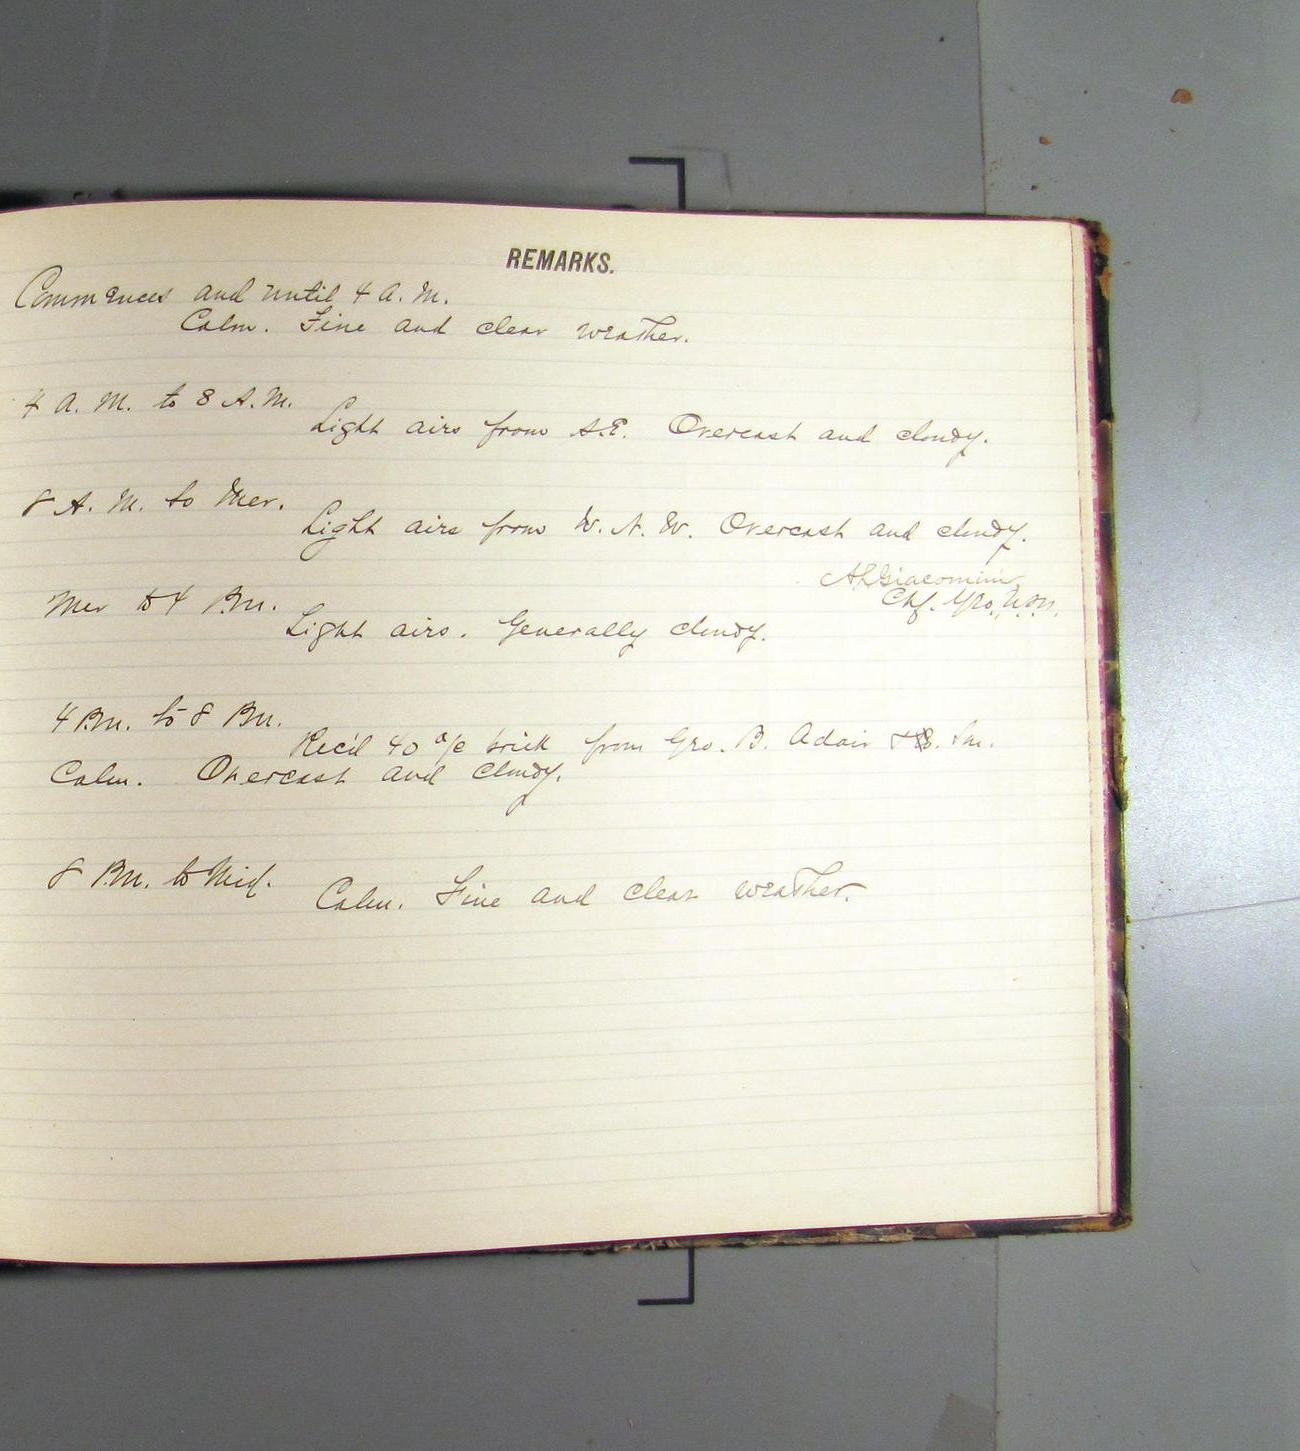 REMARKS.
Commences and until 4 A. M.
Calm. Fine and clear weather.
4 A. M. to 8 A. M.
Light airs from S.E. Overcast and cloudy.
8 A. M. to Mer.
Light airs from W. N. W. Overcast and cloudy.
Giacomini
Mer to 4 P.m.
Light airs. Generally cloudy.
4 P.m. to 8 P.m.
Rec'd 40 brick from Geo. B. Adair
Calm. Overcast and cloudy.
8 P.m. to Mid.
Calm. Fine and clear weather.